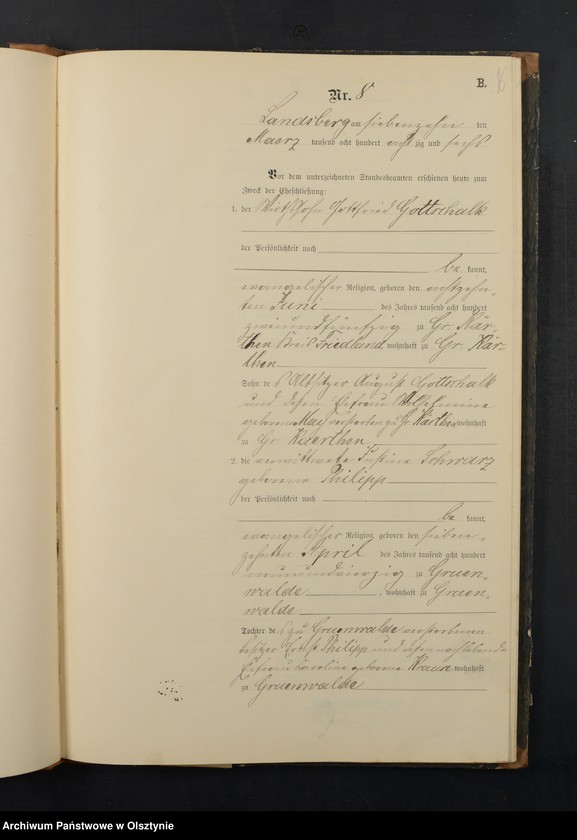 B.
Nr. 8
Landsberg am siebenzehn ten
Maerz tausend acht hundert acht zig und sechs
Vor dem unterzeichneten Standesbeamten erschienen heute zum
Zweck der Eheschließung:
1. der Wirthssohn Gottfried Gottschalk
der Persönlichkeit nach
be kannt,
evangelischer Religion, geboren den achtzehn-
ten Juni des Jahres tausend acht hundert
zweiundfünfzig zu Gr. Kär-
then Kreis Friedland wohnhaft zu Gr. Kär-
then
Sohn des Altsitzer August Gottschalk
und dessen Ehefrau Wilhelmine
geborene May verstorben zu Gr. Kärthen wohnhaft
zu Gr. Kaerthen
2. die verwittwete Justine Schwarz
geborene Philipp
der Persönlichkeit nach
be kannt,
evangelischer Religion, geboren den sieben-
zehnten April des Jahres tausend acht hundert
neunundvierzig zu Gruen-
walde, wohnhaft zu Gruen-
walde
Tochter des zu Gruenwalde verstorbenen
Besitzer Philipp und dessen nachlebende
Ehefrau Caroline geborene Krause wohnhaft
zu Gruenwalde
Archiwum Państwowe w Olsztynie